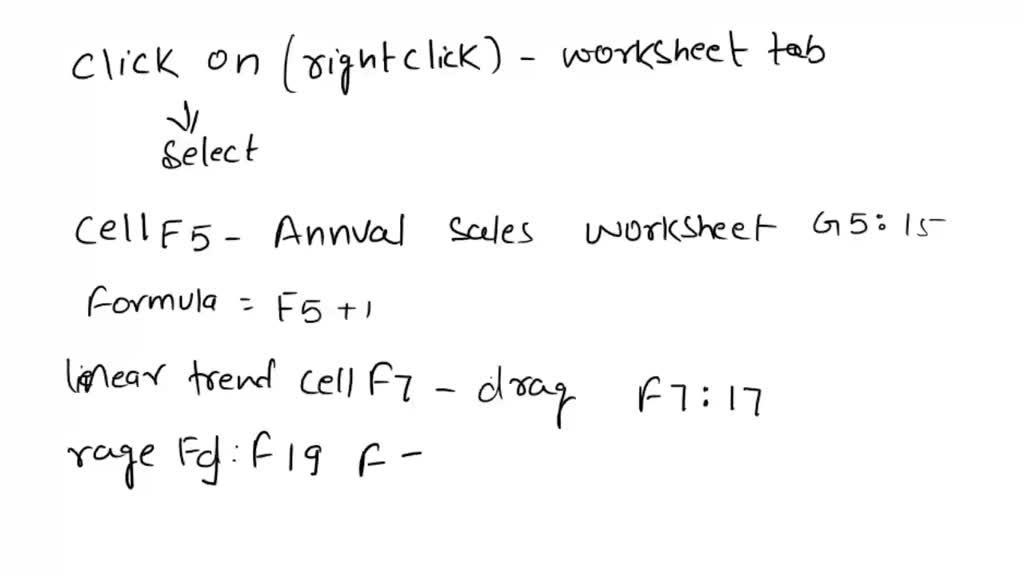 click on (right click) - worksheet tab
select
cell F5 - Annval sales worksheet G5:15
formula = F5+1
linear trend cell F7 - drag F7:17
rage Fg:F19 F -